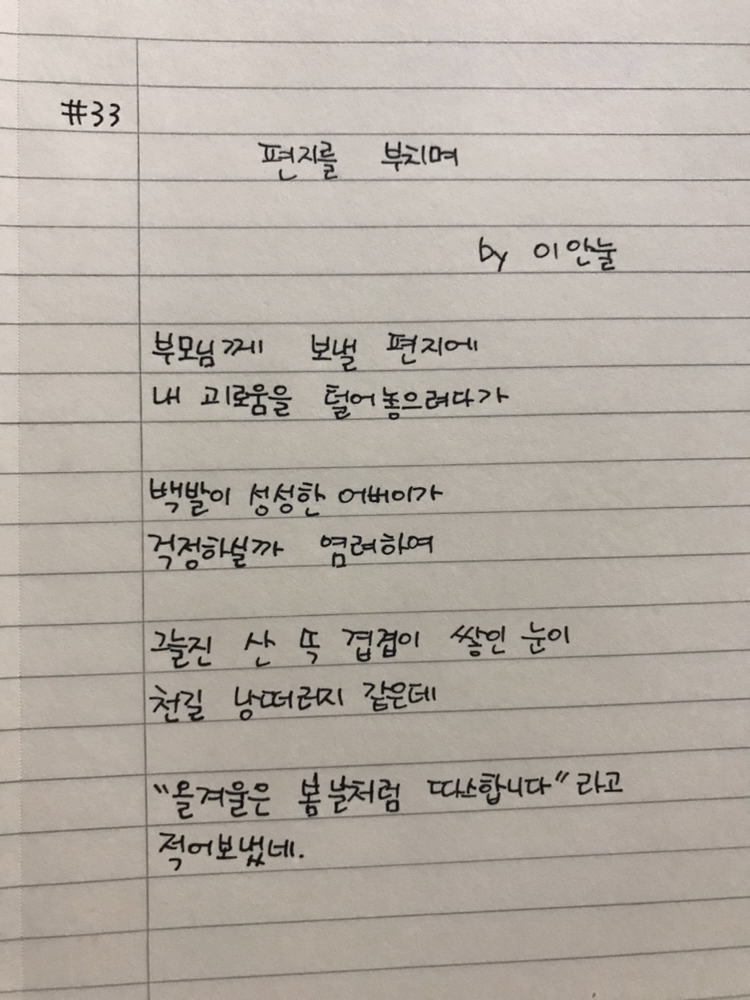 #33
편지를 부치며
by 이안눌
부모님께 보낼 편지에
내 괴로움을 털어놓으려다가
백발이 성성한 어버이가
걱정하실까 염려하여
그늘진 산 뚝 겹겹이 쌓인 눈이
천길 낭떠러지 같은데
"올겨울은 봄날처럼 따스합니다"라고
적어보냈네.